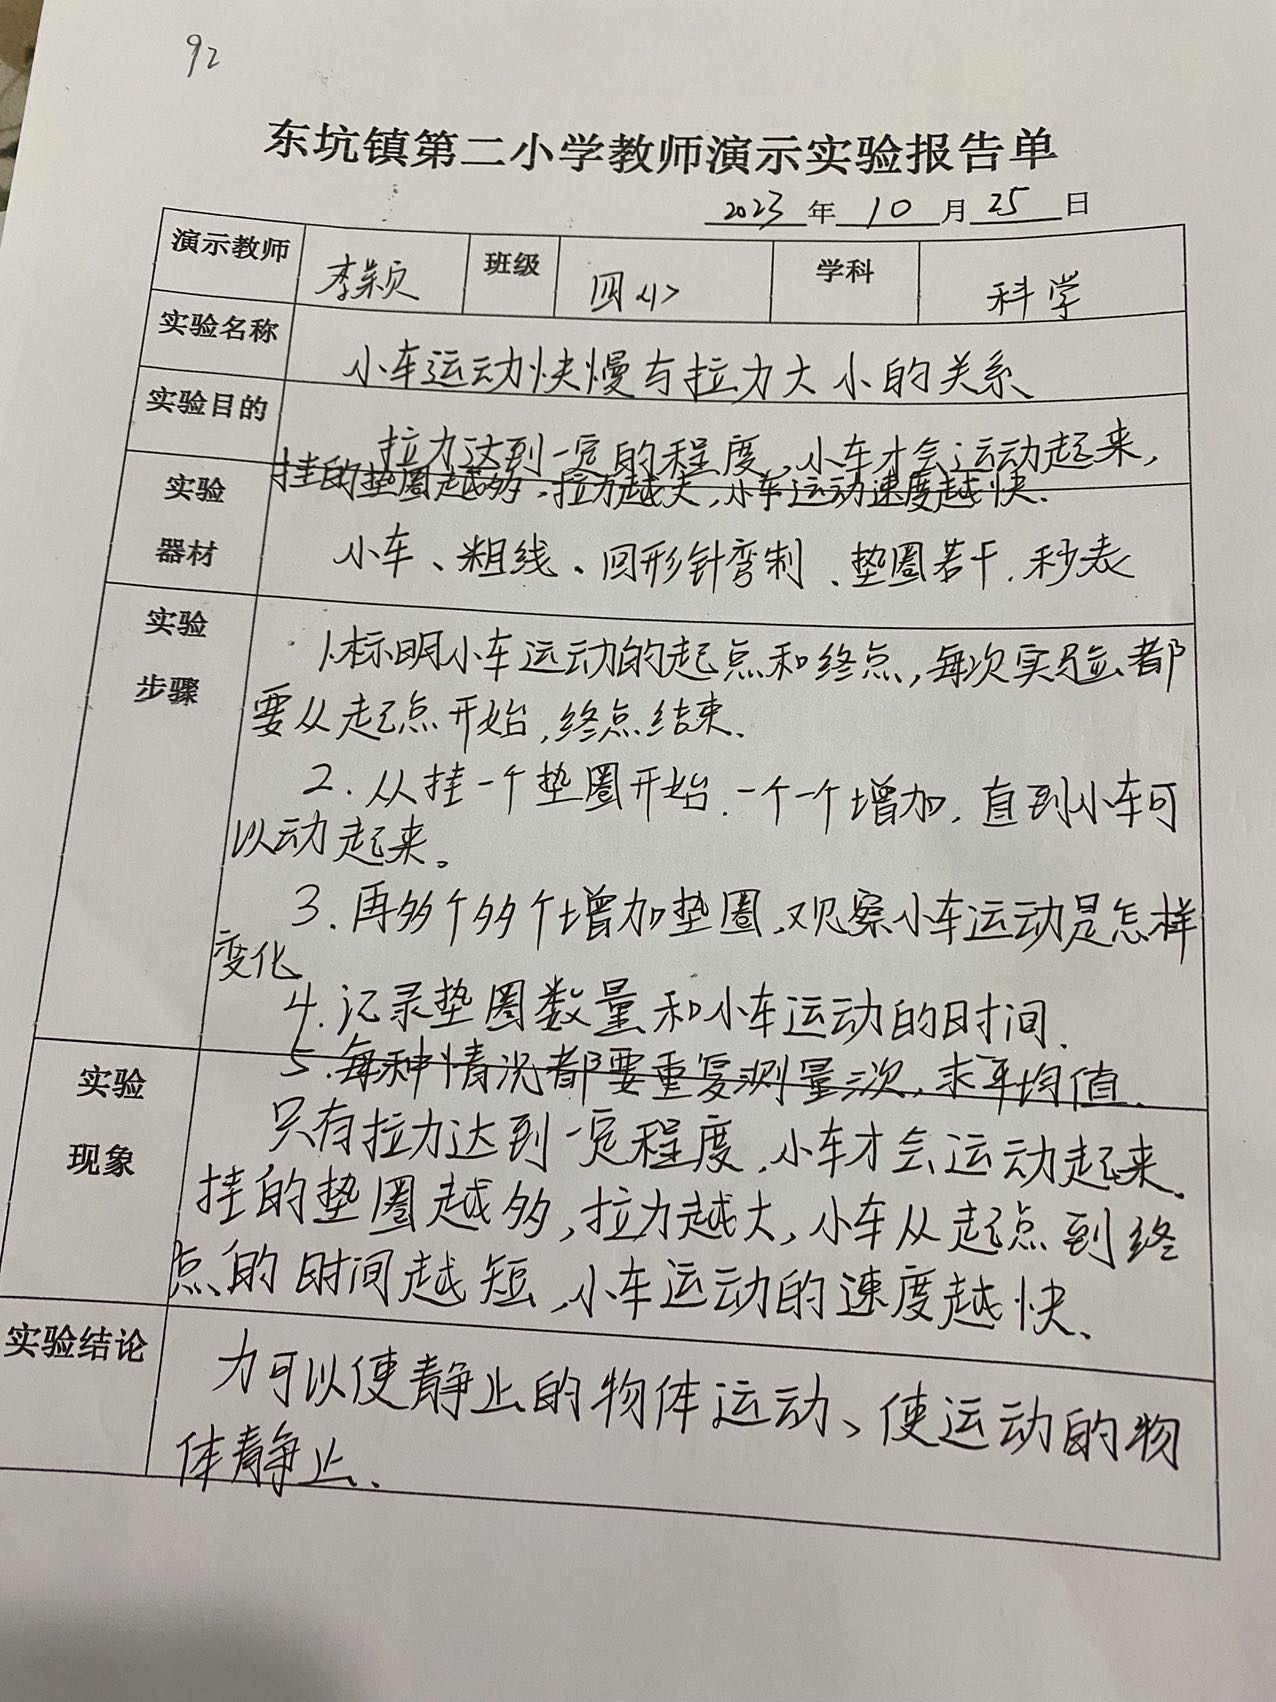 92
东坑镇第二小学教师演示实验报告单
2023年10月25日
演示教师 李颖 班级 四<1> 学科 科学
实验名称 小车运动快慢与拉力大小的关系
实验目的 拉力达到一定的程度,小车才会运动起来,
挂的垫圈越多,拉力越大,小车运动速度越快.
实验
器材
小车、粗线、回形针弯制、垫圈若干.秒表
实验
步骤
1.标明小车运动的起点和终点,每次实验都
要从起点开始,终点结束.
2.从挂一个垫圈开始.一个一个增加,直到小车可
以动起来。
3.再多个多个增加垫圈,观察小车运动是怎样
变化
4.记录垫圈数量和小车运动的时间.
5.每种情况都要重复测量三次,求平均值.
实验
现象
只有拉力达到一定程度,小车才会运动起来.
挂的垫圈越多,拉力越大,小车从起点到终
点的时间越短,小车运动的速度越快.
实验结论
力可以使静止的物体运动、使运动的物
体静止.